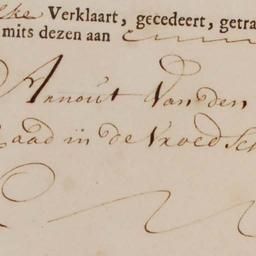 Verklaart, gecedeert, getra
mits dezen aan
Arnout Van den
Raad in de Vroedsch